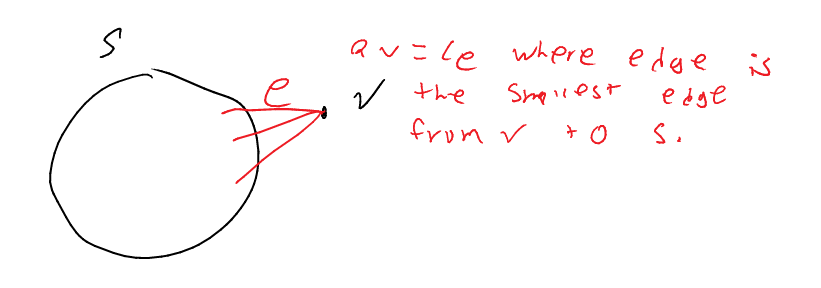 S
e
v
av = ce where edge is
the smallest edge
from v to S.